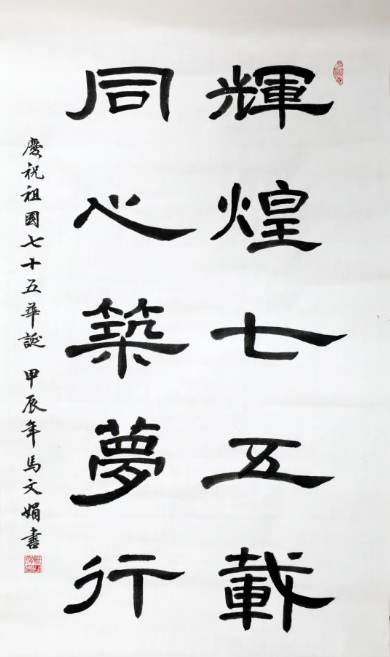 輝煌七五載
同心築夢行
慶祝祖國七十五華誕 甲辰年馬文娟書